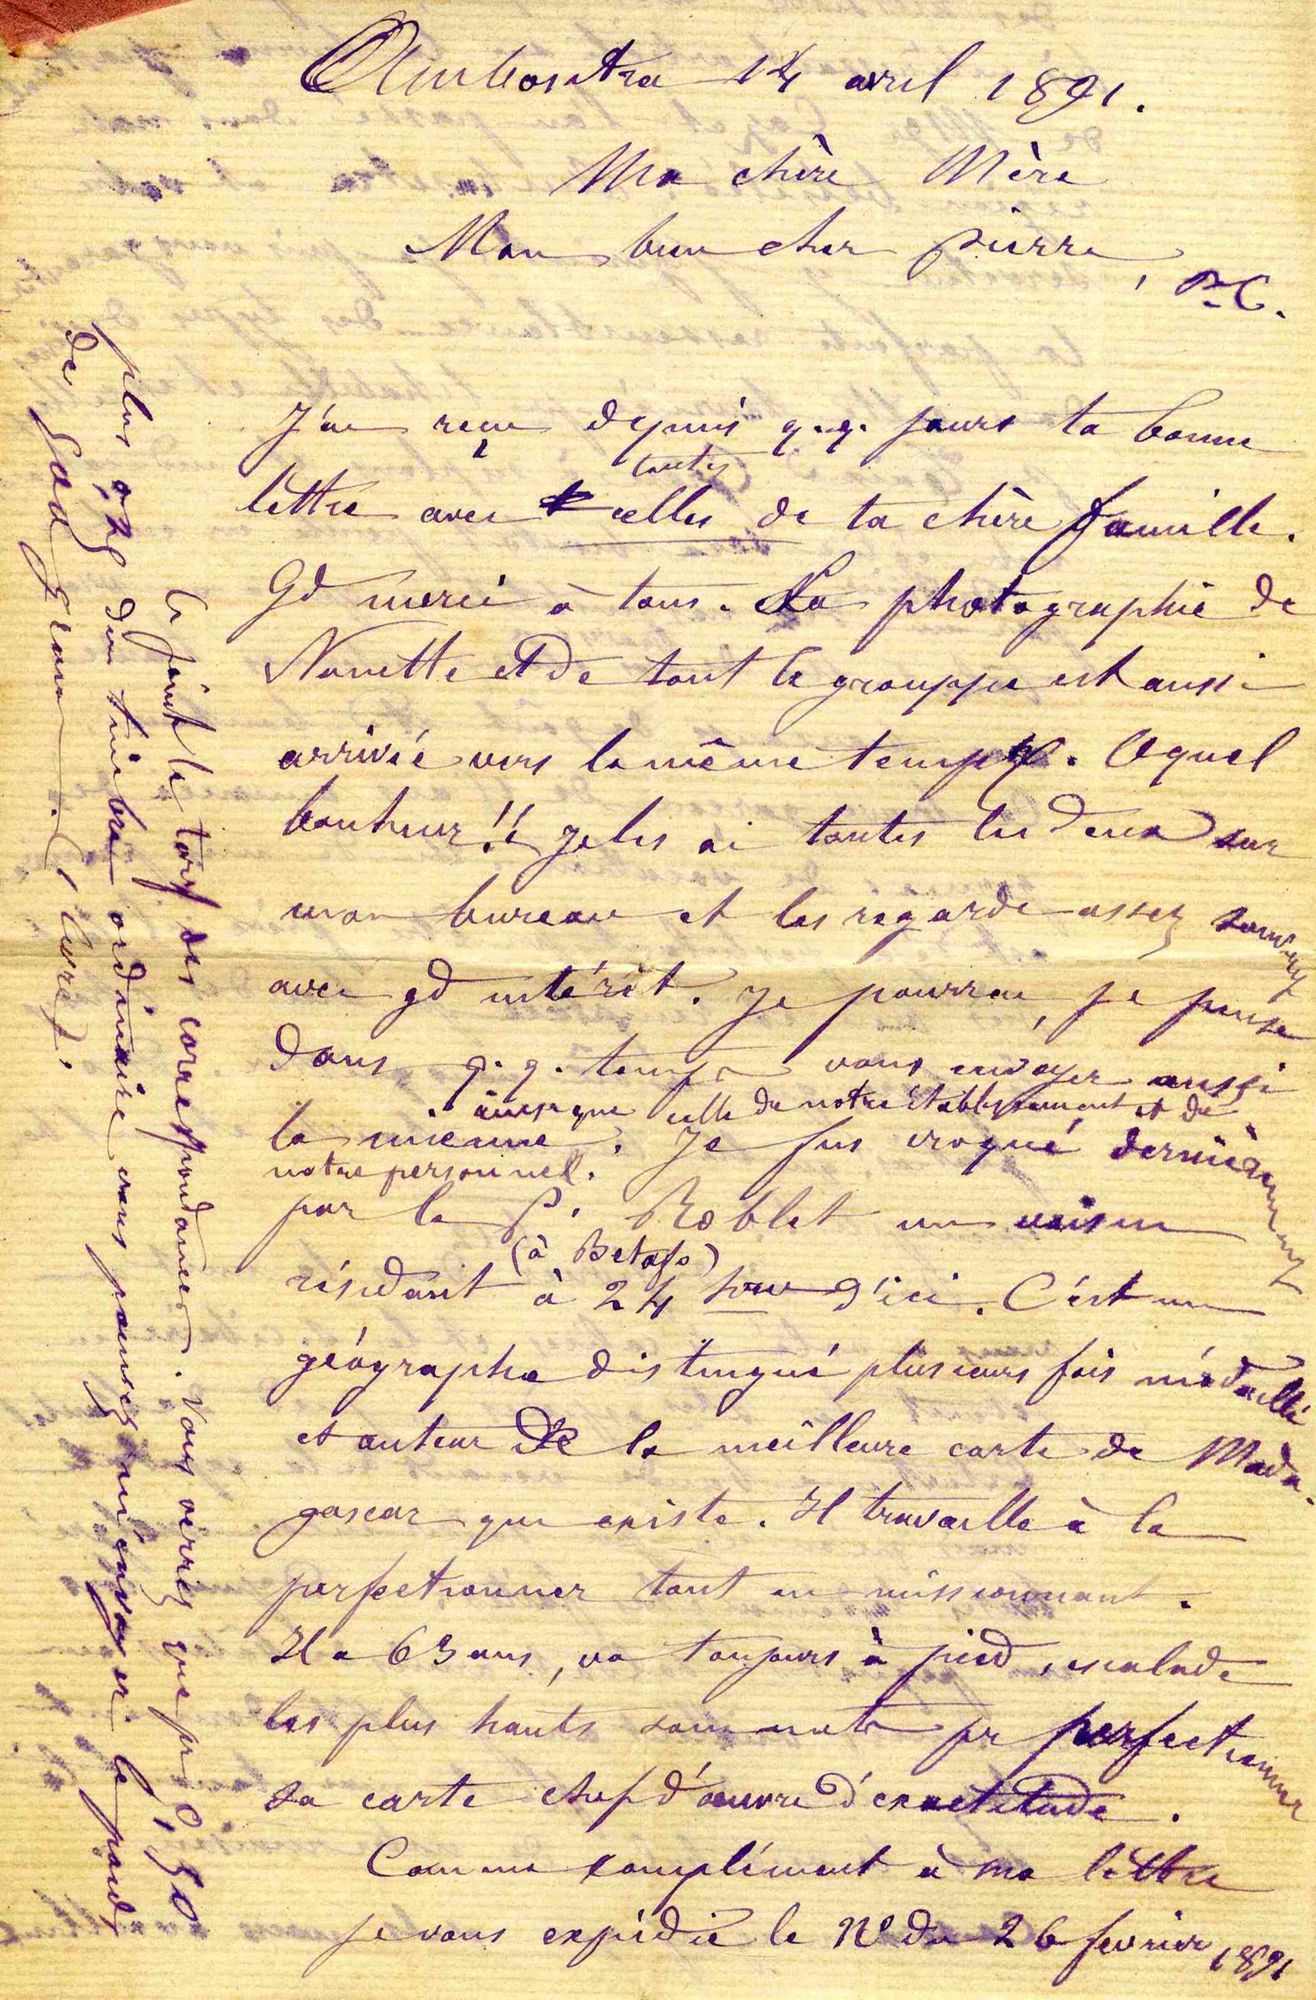 Ambositra 14 avril 1891.
Ma chère Mère
Mon bien cher pierre,
P.C.
J'ai reçu depuis q.q. jours ta bonne
lettre avec toutes celles de ta chère famille.
Gd merci à tous. La photographie de
Nanette et de tout le grouppe est aussi
arrivée vers le même temps. O quel
bonheur!! je les ai toutes les deux sur
mon bureau et les regarde assez souvent
avec gd intérêt. Je pourrai, je pense
dans q.q. temps vous envoyer aussi
la mienne ainsi que celle de notre établissement et de
notre personnel. Je fus croqué dernièrement
par le P. Roblet un voisin
résidant (à Betafo) à 24 hres d'ici. C'est un
géographe distingué plusieurs fois médaillé
et auteur de la meilleure carte de Mada-
gascar qui existe. Il travaille à la
perfectionner tout en missionnant.
Il a 63 ans, va toujours à pied, escalade
les plus hauts sommets pr perfectionner
sa carte chef d'œuvre d'exactitude.
Comme complément à ma lettre
je vous expédie le No du 26 février 1891
Ci joint le tarif des correspondances. Vous verrez que pr 0,50
plus 0,25 d'un timbre ordinaire vous pouvez m'envoyer le poids
de 500 grammes. (livre).